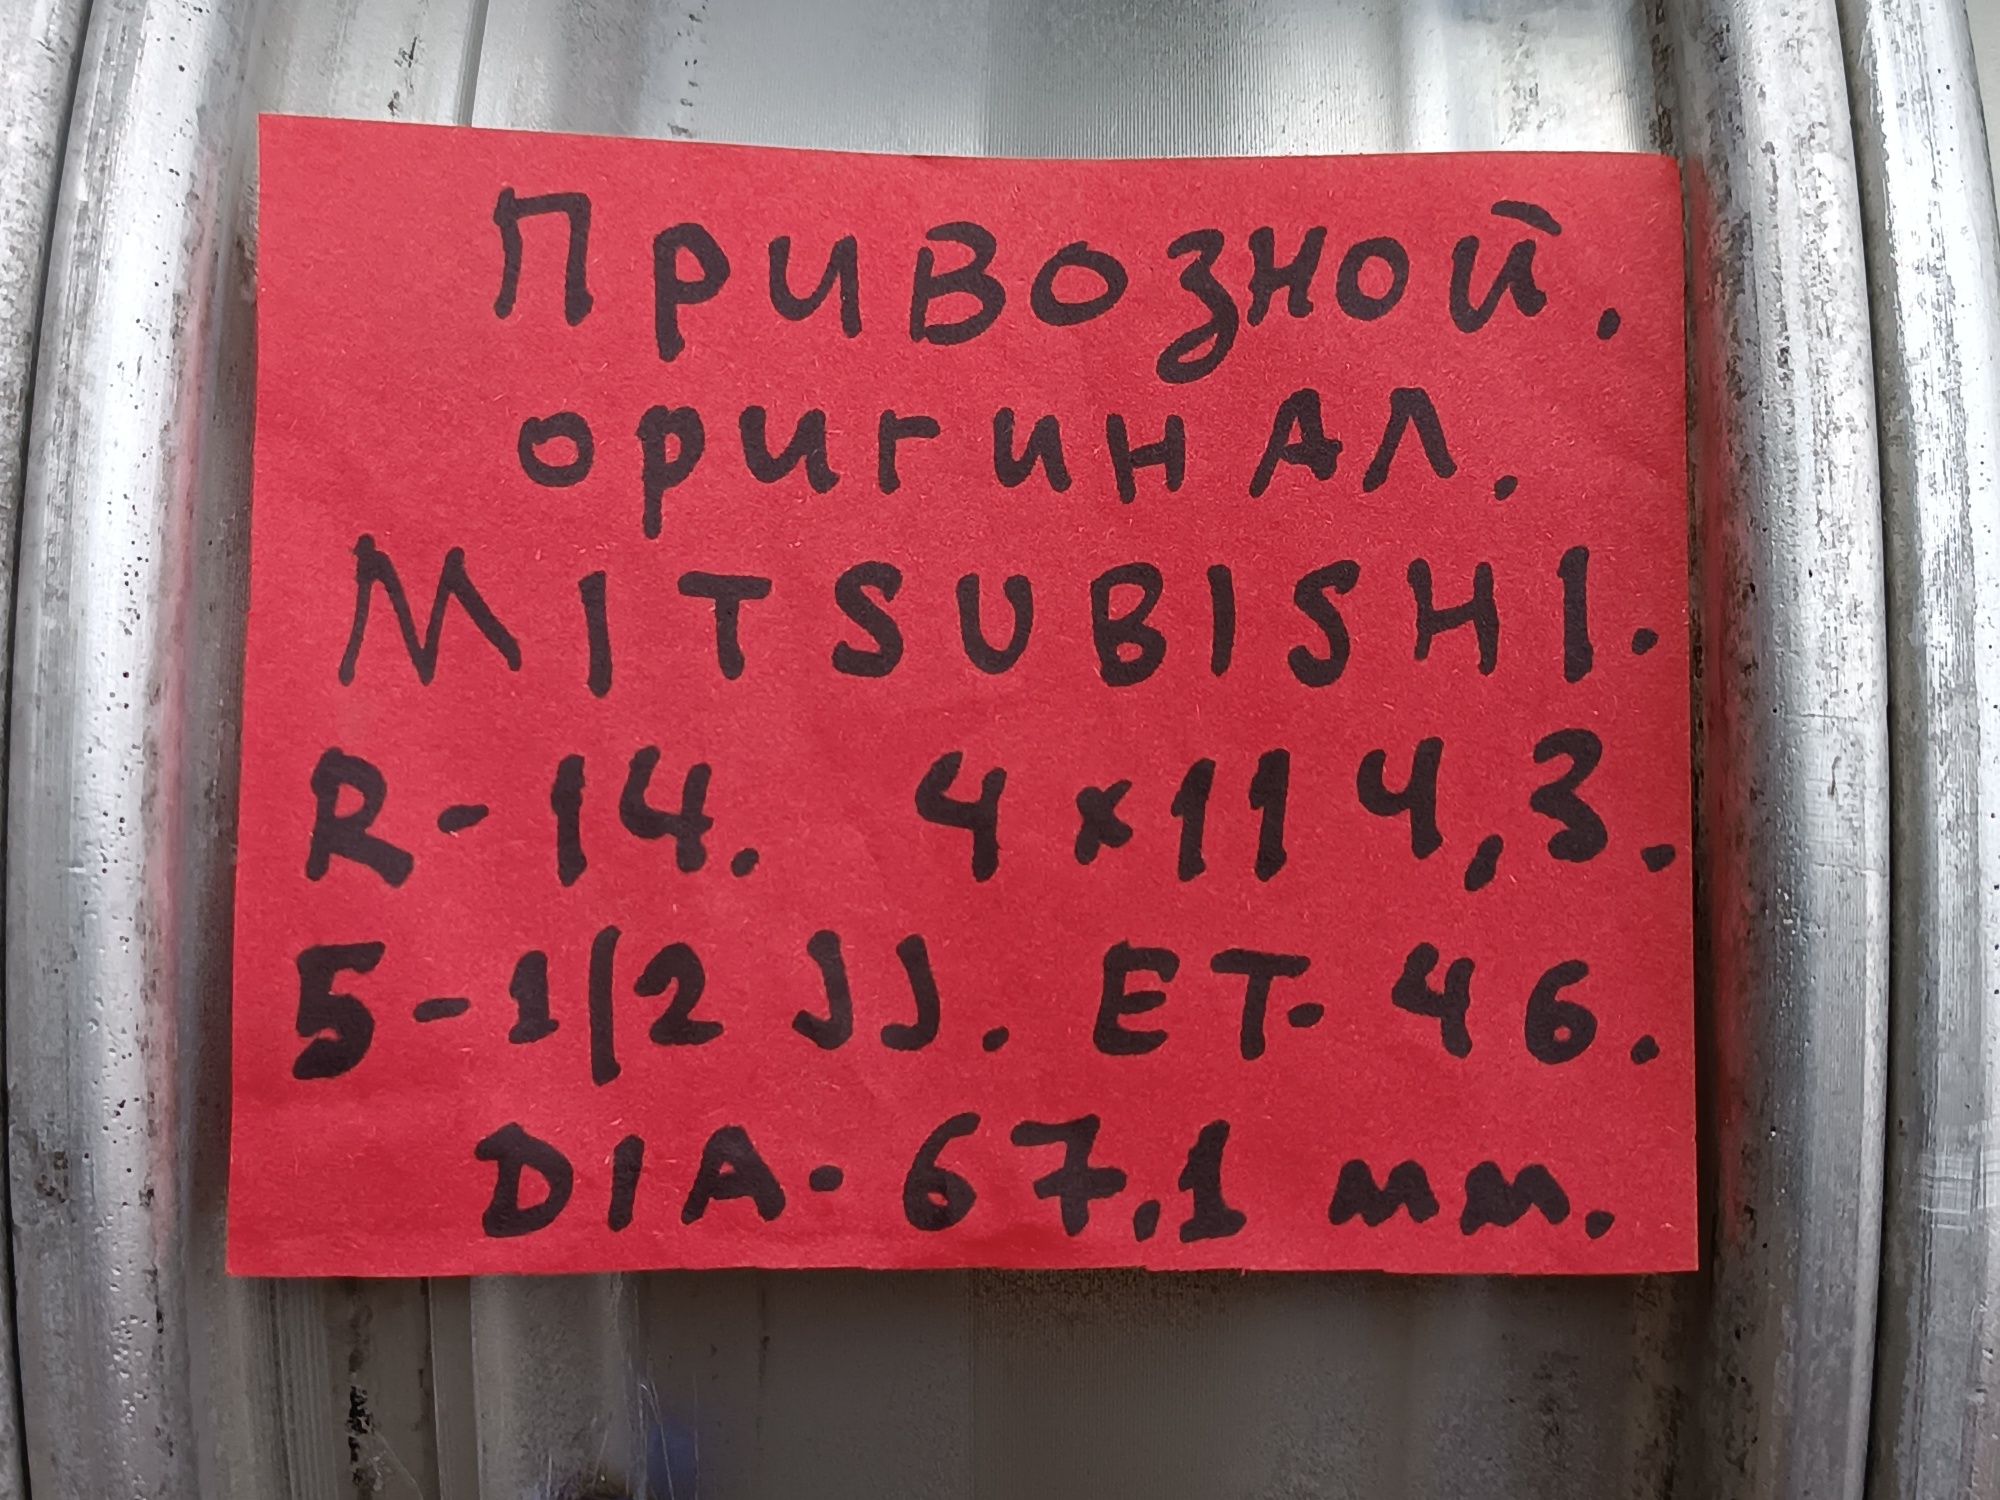 Привозной.
оригинал.
MITSUBISHI.
R-14. 4x114,3.
5-1/2 JJ. ET-46.
DIA-67,1 мм.